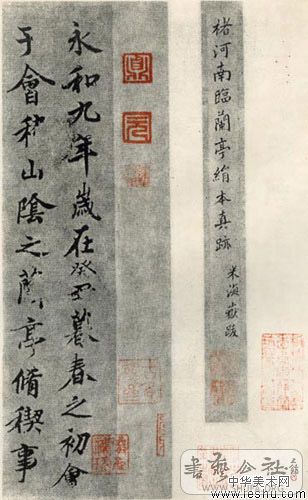 褚河南臨蘭亭絹本真跡
米海嶽跋
鼎
元
永和九年歲在癸丑暮春之初會
于會稽山陰之蘭亭脩稧事
書藝公社
中华美术网
www.ieshu.com